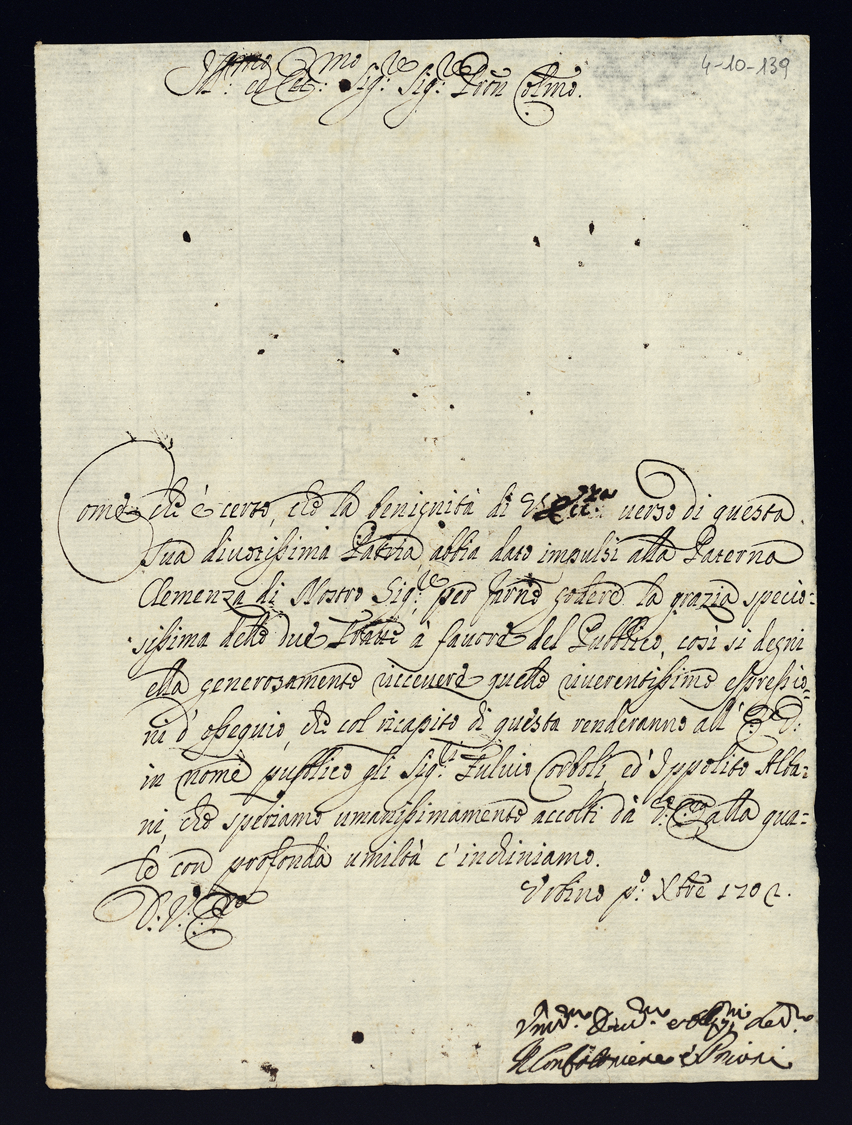 4-10-139
Ill:mo ed Ecc:mo Sig:re Sig:re Pron Colmo.
Come che è certo, che la benignità di V. Ecc:za verso di questa
sua divotissima Patria, abbia dato impulsi alla Paterna
Clemenza di Nostro Sig:re per farne godere la grazia specio-
sissima delle due Tratte à favore del Pubblico, così si degni
ella generosamente ricevere quelle riverentissime espressio-
ni d'ossequio, che col ricapito di questa renderanno all'
in nome publico gli Sig:ri Fulvio Corboli, ed' Ippolito Alba-
ni, che speriamo umanissimamente accolti dà V: alla qua-
le con profonda umiltà c'inchiniamo.
Urbino p:o Xbre 1702.
D: V: E
Il Confaloniere è Priori